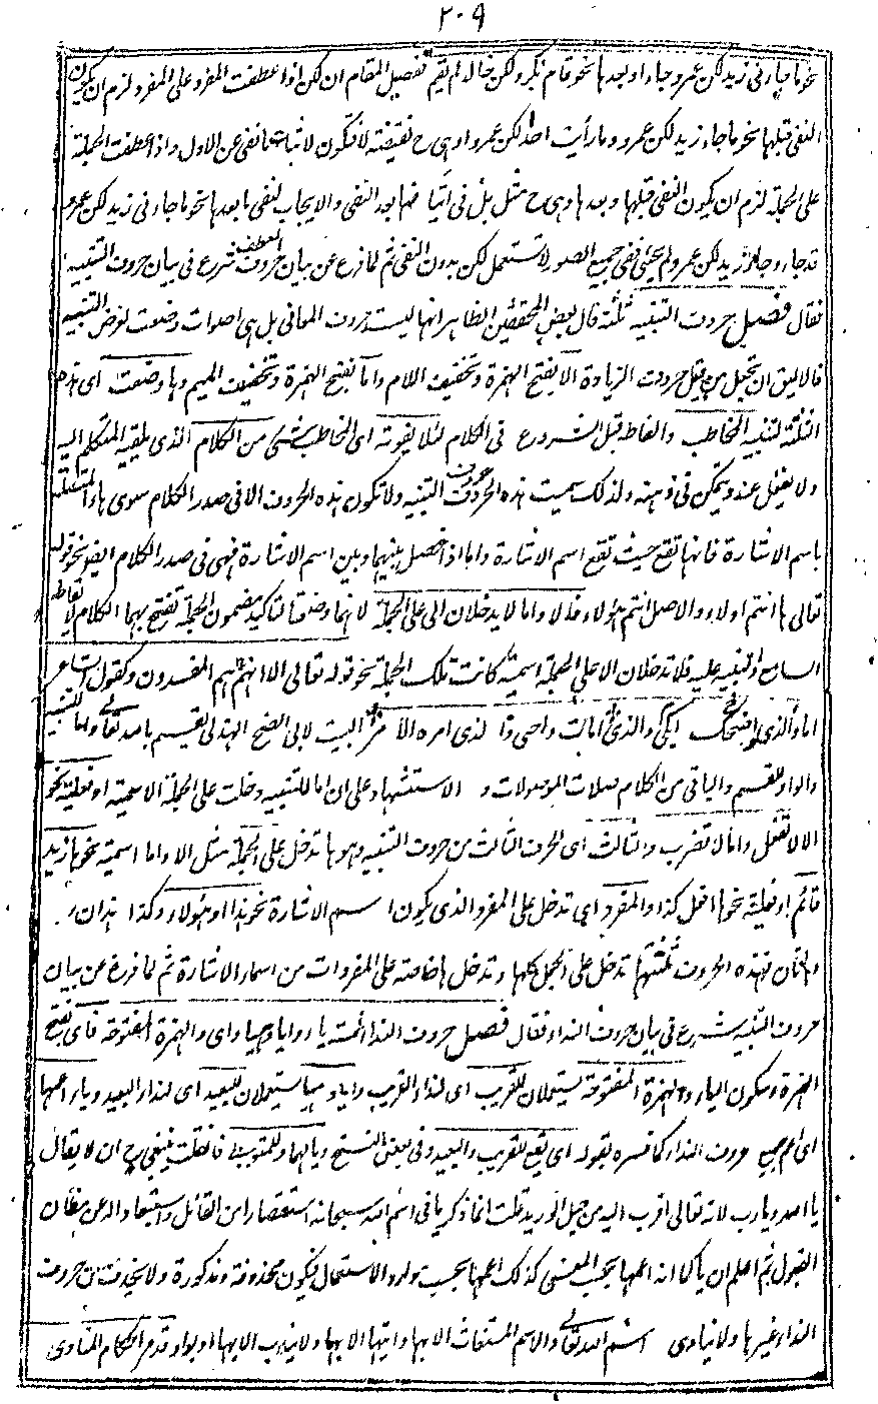 ٢٠٩
نحو ما جاءنی زید لکن عمرو جاء او بعدها نحو قام بکر ولکن خالد لم یقم تفصیل المقام ان لکن اذا عطفت المفرد علی المفرد لزم ان یکون
النفی قبلها نحو ما جاء زید لکن عمرو وما رأیت احدا لکن عمروا وهی ح نقیضة لا فتکون لاثبات ما نفی عن الاول واذا عطفت الجملة
علی الجملة لزم ان یکون النفی قبلها او بعدها وهی ح مثل بل فی اتیانها بعد النفی والایجاب لنفی ما بعدها نحو ما جاءنی زید لکن عمرو
قد جاء وجاءنی زید لکن عمرو لم یجئ ففی جمیع الصور لا تستعمل لکن بدون النفی ثم لما فرغ عن بیان حروف العطف شرع فی بیان حروف التنبیه
فقال فصل حروف التنبیه ثلثة قال بعض المحققین الظاهر انها لیست حروف المعانی بل هی اصوات وضعت لغرض التنبیه
فالالیق ان تجعل من قبیل حروف الزیادة الا بفتح الهمزة وتخفیف اللام واما بفتح الهمزة وتخفیف المیم وها وضعت ای هذه
الثلثة لتنبیه المخاطب والقاظه قبل الشروع فی الکلام لئلا یفوته ای المخاطب شئ من الکلام الذی یلقیه المتکلم الیه
ولا یغفل عنه ویتمکن فی ذهنه ولذلک سمیت هذه الحروف حروف التنبیه ولا تکون هذه الحروف الا فی صدر الکلام سوی ها المتصلة
باسم الاشارة فانها تقع حیث تقع اسم الاشارة واما اذا فصل بینها وبین اسم الاشارة فهی فی صدر الکلام ایضو نحو قوله
تعالی ها انتم اولاء والاصل انتم هؤلاء فالا واما لا یدخلان الا علی الجملة لانهما وضعتا لتاکید مضمون الجملة تفتح بهما الکلام لایقاظ
السامع او لتنبیه علیه فلا تدخلان الا علی الجملة اسمیة کانت تلک الجملة نحو قوله تعالی الا انهم هم المفسدون وکقول الشاعر
اما والذی اضحک ابکی والذی امات واحی والذی امره الامر البیت لابی الضح الهذلی لقسم باسد تعالی واما للتنبیه
والواو للقسم والباقی من الکلام صلات الموصولات و الاستشهاد علی ان اما للتنبیه دخلت علی الجملة الاسمیة او فعلیة نحو
الا لا تفعل واما لا تضرب والثالث ای الحرف الثالث من حروف التنبیه وهو ها تدخل علی الجملة مثل الا واما اسمیة نحو ها زید
قائم او فعلیة نحو ها افعل کذا والمفرد ای تدخل علی المفرد الذی یکون اسم الاشارة نحو هذا او هؤلاء وکذا هذان و
هاتان فهذه الحروف ثلثتها تدخل علی الجمل کلها وتدخل ها خاصة علی المفردات من اسماء الاشارة ثم لما فرغ عن بیان
حروف التنبیه شرع فی بیان حروف النداء فقال فصل حروف النداء خمسة یا وایا وهیا وای والهمزة المفتوحة فای بفتح
الهمزة وسکون الیاء والهمزة المفتوحة یستعملان للقریب ای لنداء القریب وایا وهیا یستعملان للبعید ای لنداء البعید ویا اعمها
ای اعم جمیع حروف النداء کما فسره بقوله ای یقع للقریب والبعید وفی بعض النسخ ویا لهما وللمتوسط فان قلت ینبغی ح ان لا یقال
یا الله ویا رب لانه تعالی اقرب الیه من حبل الورید قلت انما ذکر یا فی اسم الله سبحانه استقصارا من القائل واستبعادا له عن مظان
القبول ثم اعلم ان یا کما انه اعمها بحسب المعنی کذلک اعمها بحسب موارد الاستعمال فیکون محذوفة ومذکورة ولا یحذف من حروف
النداء غیرها ولا ینادی اسم الله تعالی والاسم المستغاث الا بها وایتها الا بها ولا یندب الا بها او بوا وقد مر احکام المنادی